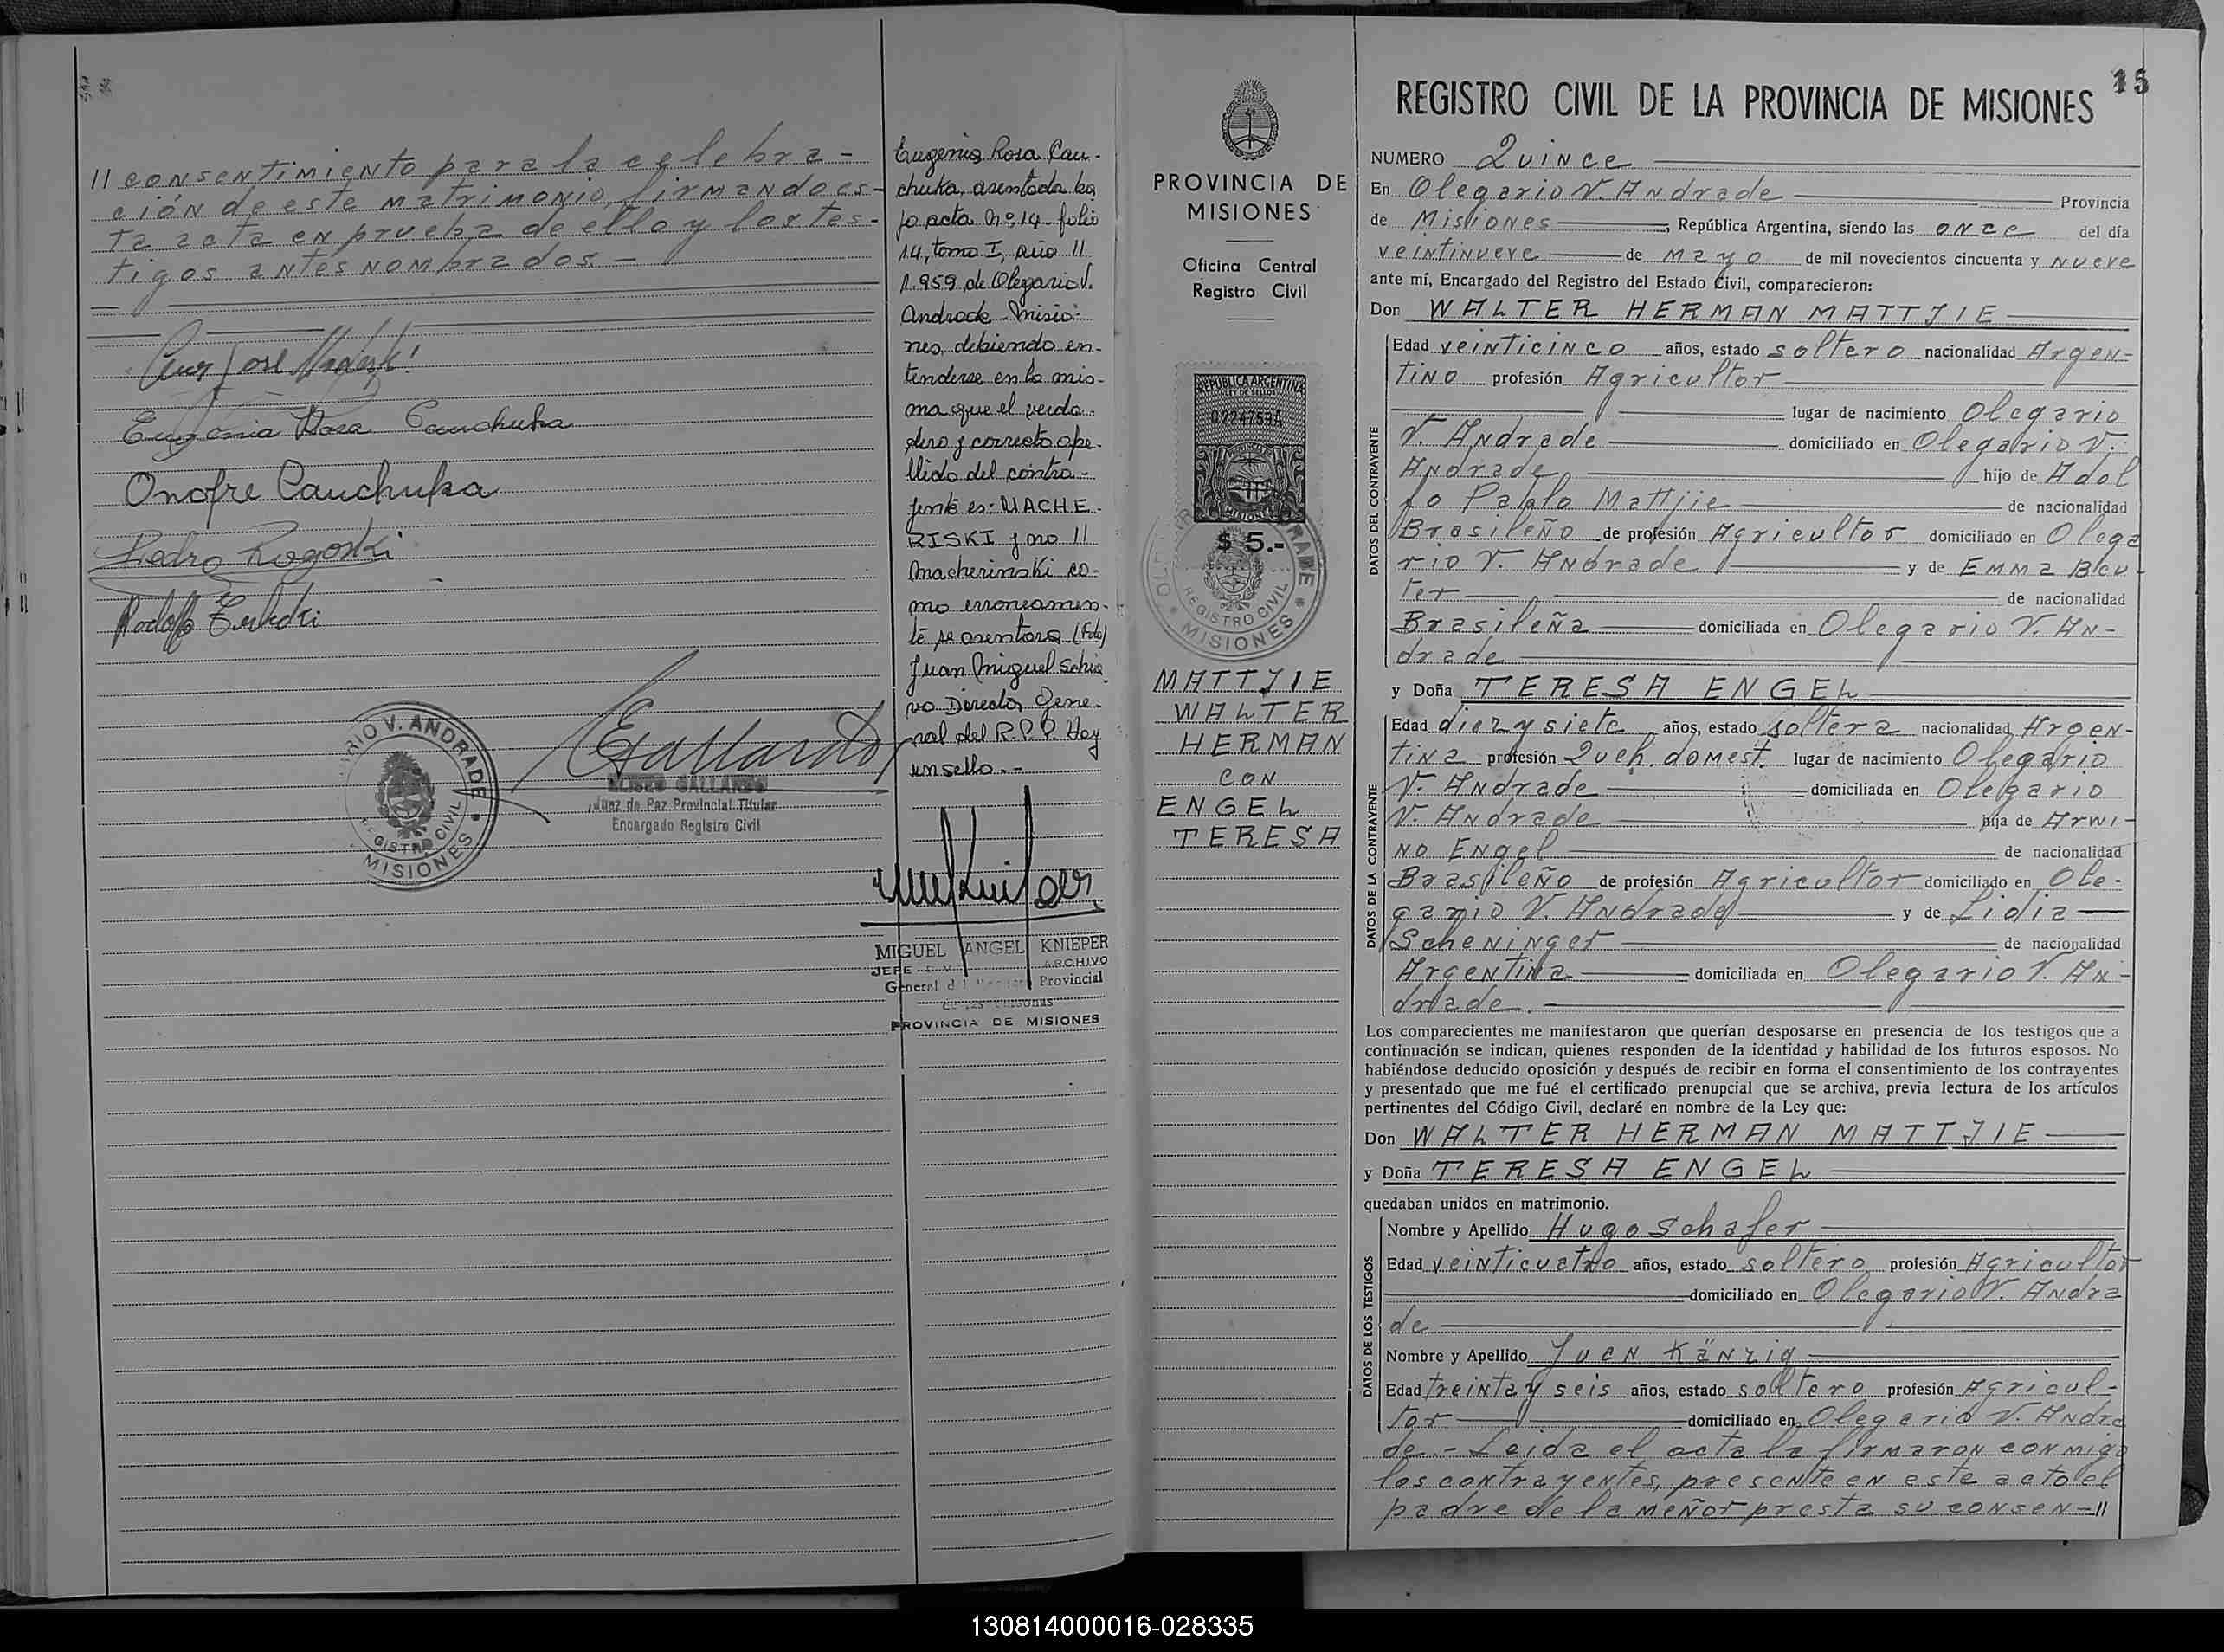 // consentimiento para la celebra-
ción de este matrimonio, firmando es-
ta acta en prueba de ello y los tes-
tigos antes nombrados.-
Eugenia Rosa Cauchuka
Onofre Cauchuka
Pedro Rogoski
Rodolfo
OLEGARIO V. ANDRADE
REGISTRO CIVIL
MISIONES
Gallardo
ELISEO GALLARDO
Juez de Paz Provincial Titular
Encargado Registro Civil
Eugenia Rosa Cau-
chuka, asentada ba
jo acta nº 14 folio
14, tomo I, año //
1.959 de Olegario V.
Andrade - Misio-
nes, debiendo en-
tenderse en la mis-
ma que el verda-
dero y correcto ape-
llido del contra-
yente es: MACHE-
RISKI y no //
Macherinski co-
mo erroneamen-
te se asentara (Fdo)
Juan Miguel Schia
vo Director Gene-
ral del R.P.P. Hay
un sello.-
MIGUEL ANGEL KNIEPER
JEFE ARCHIVO
General Provincial
de las Personas
PROVINCIA DE MISIONES
PROVINCIA DE
MISIONES
Oficina Central
Registro Civil
REPUBLICA ARGENTINA
LEY DE SELLOS
0224759A
MISIONES
$ 5.-
REGISTRO CIVIL
MISIONES
MATTJIE
WALTER
HERMAN
CON
ENGEL
TERESA
15
REGISTRO CIVIL DE LA PROVINCIA DE MISIONES
NUMERO Quince
En Olegario V. Andrade Provincia
de Misiones, República Argentina, siendo las once del día
veintinueve de mayo de mil novecientos cincuenta y nueve
ante mí, Encargado del Registro del Estado Civil, comparecieron:
Don WALTER HERMAN MATTJIE
DATOS DEL CONTRAYENTE
Edad veinticinco años, estado soltero nacionalidad Argen-
tino profesión Agricultor
lugar de nacimiento Olegario
V. Andrade domiciliado en Olegario V.
Andrade hijo de Adol
fo Pablo Mattjie de nacionalidad
Brasileño de profesión Agricultor domiciliado en Olega
rio V. Andrade y de Emma Beu-
ter de nacionalidad
Brasileña domiciliada en Olegario V. An-
drade
y Doña TERESA ENGEL
DATOS DE LA CONTRAYENTE
Edad diez y siete años, estado soltera nacionalidad Argen-
tina profesión Queh. domest. lugar de nacimiento Olegario
V. Andrade domiciliada en Olegario
V. Andrade hija de Arwi-
no Engel de nacionalidad
Brasileño de profesión Agricultor domiciliado en Ole-
gario V. Andrade y de Lidia
Scheninger de nacionalidad
Argentina domiciliada en Olegario V. An-
drade.
Los comparecientes me manifestaron que querían desposarse en presencia de los testigos que a
continuación se indican, quienes responden de la identidad y habilidad de los futuros esposos. No
habiéndose deducido oposición y después de recibir en forma el consentimiento de los contrayentes
y presentado que me fué el certificado prenupcial que se archiva, previa lectura de los artículos
pertinentes del Código Civil, declaré en nombre de la Ley que:
Don WALTER HERMAN MATTJIE
y Doña TERESA ENGEL
quedaban unidos en matrimonio.
DATOS DE LOS TESTIGOS
Nombre y Apellido Hugo Schafer
Edad veinticuatro años, estado soltero profesión Agricultor
domiciliado en Olegario V. Andra
de
Nombre y Apellido Juan Känzig
Edad treinta y seis años, estado soltero profesión Agricul-
tor domiciliado en Olegario V. Andra
de.- Leida el acta la firmaron conmigo
los contrayentes, presente en este acto el
padre de la meñor presta su consen-//
130814000016-028335